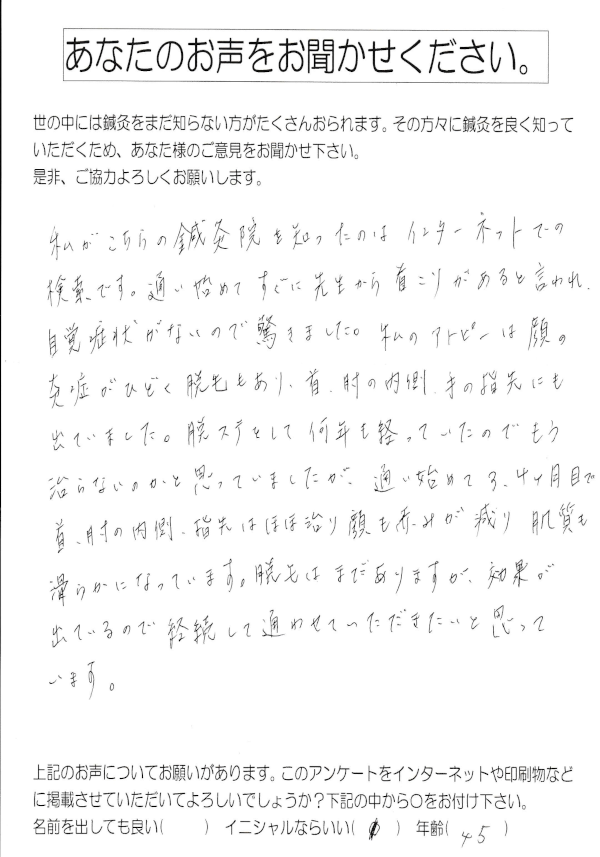 あなたのお声をお聞かせください。
世の中には鍼灸をまだ知らない方がたくさんおられます。その方々に鍼灸を良く知って
いただくため、あなた様のご意見をお聞かせ下さい。
是非、ご協力よろしくお願いします。
私がこちらの鍼灸院を知ったのは インターネットでの
検索です。通い始めて すぐに先生から首こりがあると言われ、
自覚症状がないので驚きました。私のアトピーは顔の
炎症がひどく脱毛もあり、首、肘の内側、手の指先にも
出ていました。脱ステをして何年も経っていたのでもう
治らないのかと思っていましたが、通い始めて3、4ヶ月目で
首、肘の内側、指先はほぼ治り顔も赤みが減り 肌質も
滑らかになっています。脱毛はまだありますが、効果が
出ているので経続して通わせていただきたいと思って
います。
上記のお声についてお願いがあります。このアンケートをインターネットや印刷物など
に掲載させていただいてよろしいでしょうか?下記の中から○をお付け下さい。
名前を出しても良い( ) イニシャルならいい( ) 年齢( 45 )